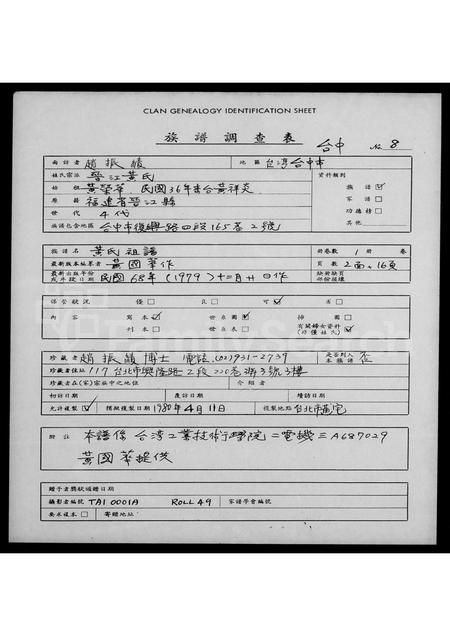 CLAN GENEALOGY IDENTIFICATION SHEET
族譜調查表 台中 No. 8
面訪者 趙振績 地區 台灣台中市
姓氏宗派 晉江黃氏 資料類別
始祖 黃榮華 民國36年來台黃祥炎 族譜 ☑
原籍 福建省晉江縣 家譜 □
世代 4代 功德榜 □
族譜包含地區 台中市復興路四段165巷2號 其他
族譜名 黃氏祖譜 冊卷數 1 冊 卷
最新版本編著者 黃國華作 頁數 2面,16頁
最新出版年份或年段日期 民國68年(1979)十二月廿日作 缺冊缺頁部份損壞
保管狀況 優 □ 良 □ 可 ☑ 差 □
內容 寫本 ☑ 世系圖 ☑ 掃圖 □
刊本 □ 世系表 □ 有關婦女資料 (不僅姓氏) ☑
珍藏者 趙振績博士 電話(02)931-2739 是否列入本族譜 否
珍藏者住址 117台北市興隆路2段220巷 3號3樓
珍藏者在(家)宗族中之地位 介紹者
初訪日期 產訪日期 續訪日期
允許複製 ☑ 開始複製日期 1980年4月11日 複製地點 台北市萬宅
附註 本譜係台灣工業技術學院二電機三A687029
黃國華提供
贈予者獎狀頒贈日期
攝影者編號 TAI 0001A ROLL 49 家譜學會編號
要求複本 □ 寄贈地址:
FamilySearch